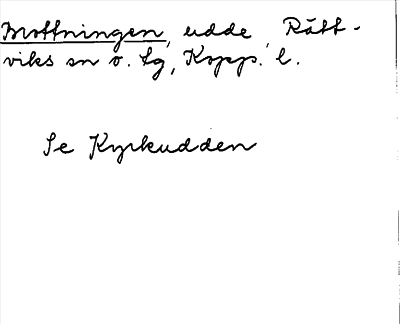 Mottningen, udde, Rätt-
viks sn o. lg, Kopp. l.
Se Kyrkudden